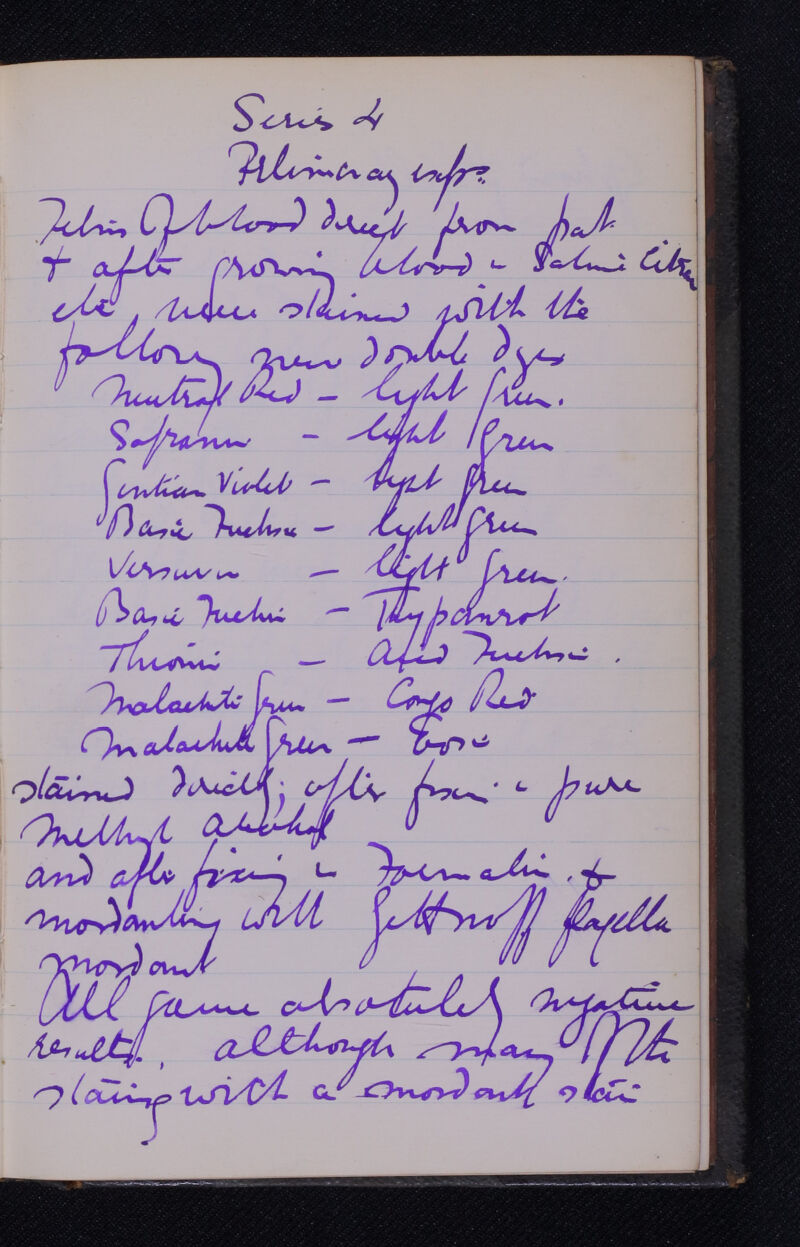 Series 4
Preliminary exps.
Films of blood direct from pat.
+ after growing blood in Saline Citrate
etc were stained with the
following new double dyes
Neutral Red – light Green.
Safranin – light Green
Gentian Violet – light Green
Basic Fuchsin – light Green
Vesuvin – light Green.
Basic Fuchsin – Trypanrot
Thionin – Acid Fuchsin.
Malachite Green – Congo Red
Malachite Green – Eosin
stained directly; after fixing in pure
Methyl Alcohol
and after fixing in Formalin. +
mordanting with flagella
mordant
All gave absolutely negative
results, although many of the
stains with a mordant stain